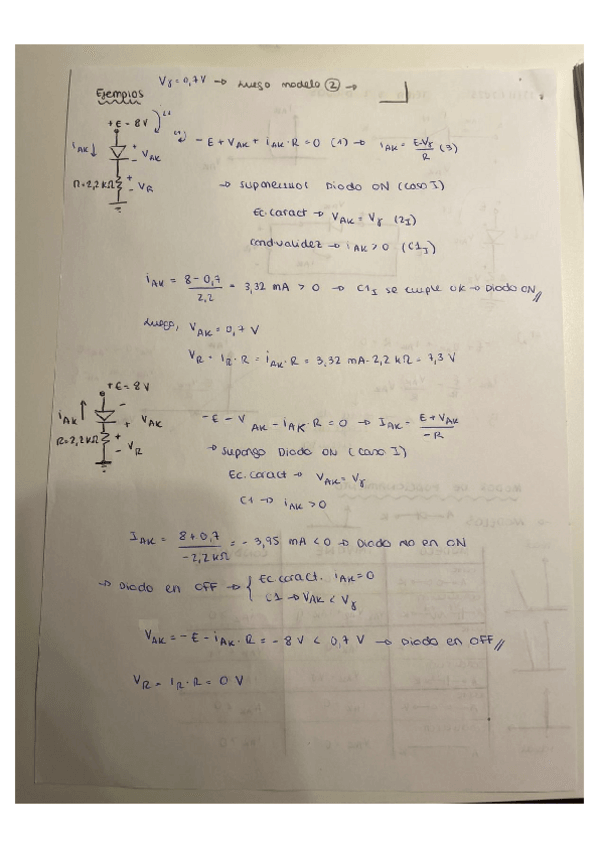 Vγ = 0,7 V → Luego modelo ② →
Ejemplos
+E = 8V
iAK ↓ + VAK -
R = 2,2 kΩ + - VR
- E + VAK + iAK · R = 0 (1) → iAK = E-Vγ / R (3)
→ suponemos Diodo ON (caso I)
Ec. caract → VAK = Vγ (2I)
cond validez → iAK > 0 (C1I)
iAK = 8 - 0,7 / 2,2 = 3,32 mA > 0 → C1I se cumple OK → Diodo ON //
Luego, VAK = 0,7 V
VR = IR · R = iAK · R = 3,32 mA · 2,2 kΩ = 7,3 V
+E = 8V
iAK ↑ - + VAK
R = 2,2 kΩ + - VR
- E - VAK - iAK · R = 0 → IAK = E + VAK / -R
→ supongo Diodo ON (caso I)
Ec. caract → VAK = Vγ
C1 → iAK > 0
IAK = 8 + 0,7 / -2,2 kΩ = - 3,95 mA < 0 → Diodo no en ON
→ Diodo en OFF → { Ec. caract. iAK = 0
C1 → VAK < Vγ
VAK = - E - iAK · R = - 8 V < 0,7 V → Diodo en OFF //
VR = IR · R = 0 V